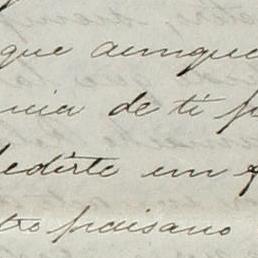 que aunque
ncia de ti p
edirte un f
tro paisano